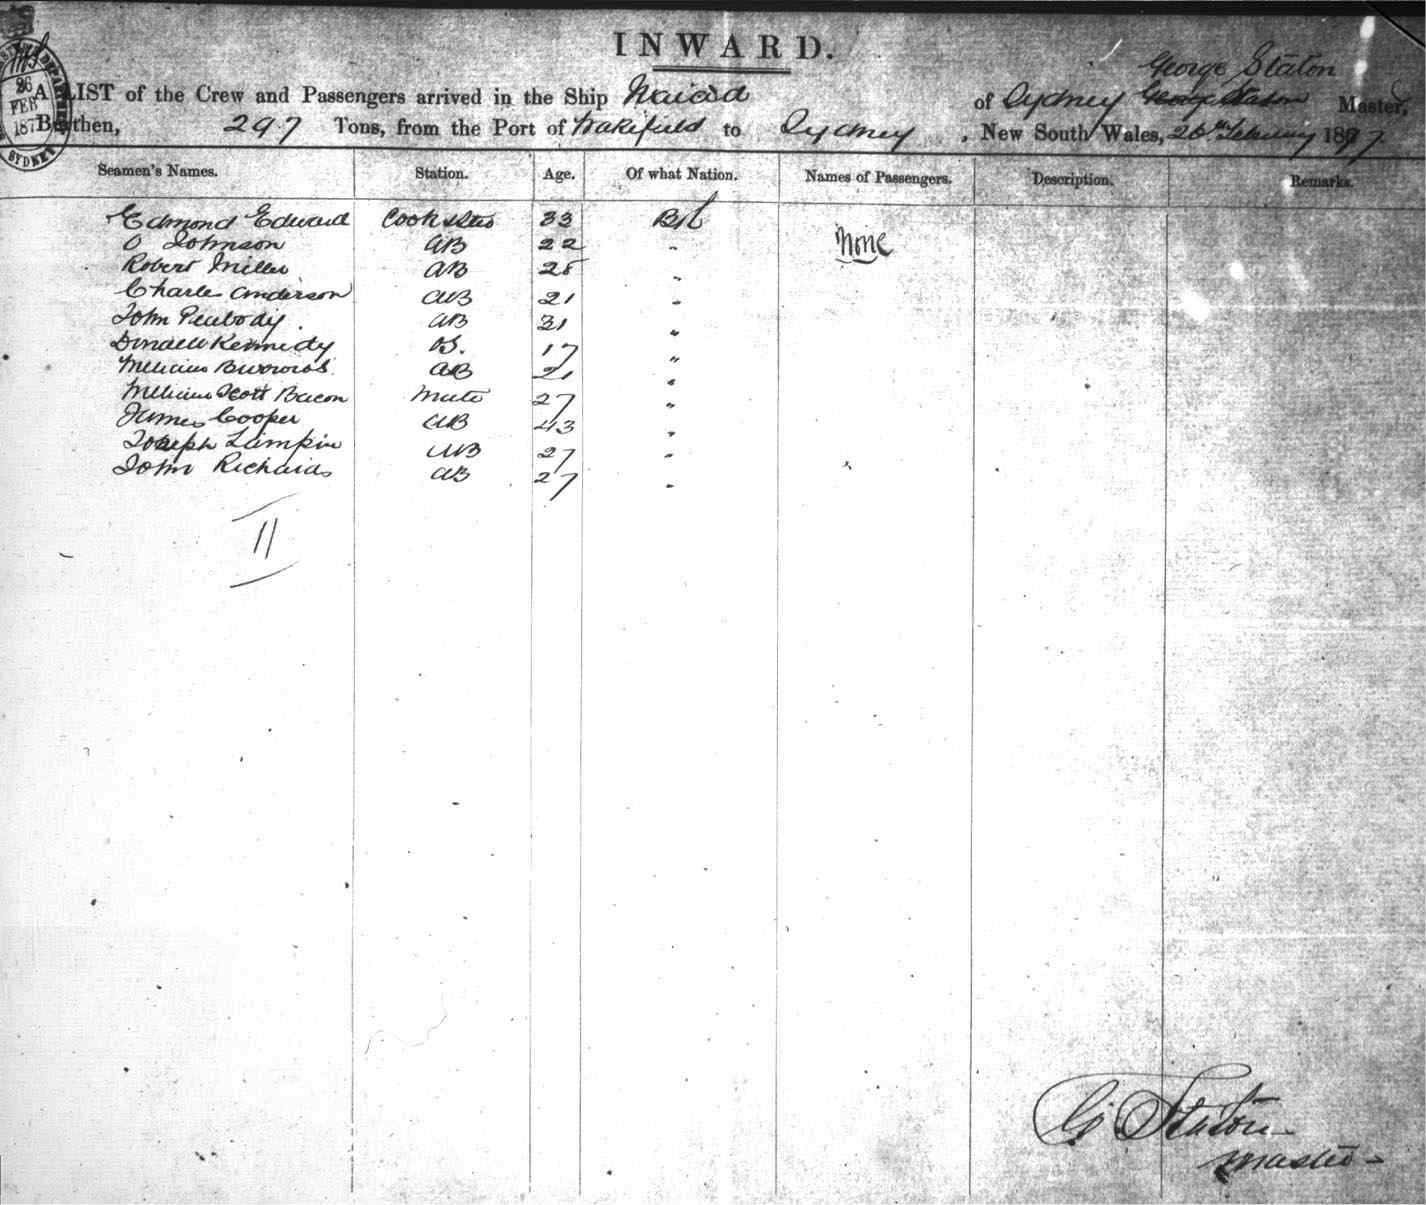 INWARD.
George Staton
A LIST of the Crew and Passengers arrived in the Ship Naiad of Sydney George Staton Master,
Burthen, 297 Tons, from the Port of Wakefield to Sydney, New South Wales, 26th February 1877
26 FEB 187
SYDNEY
Seamen's Names. Station. Age. Of what Nation. Names of Passengers. Description. Remarks.
Edmond Edward Cook & Std 33 Brit
O Johnson AB 22 " None
Robert Miller AB 25 "
Charles Anderson AB 21 "
John Peabody AB 31 "
Donald Kennedy OS. 17 "
William Burrows AB 21 "
William Scott Bacon Mate 27 "
James Cooper AB 43 "
Joseph Lampin AB 27 "
John Richards AB 27 "
11
G Staton
Master